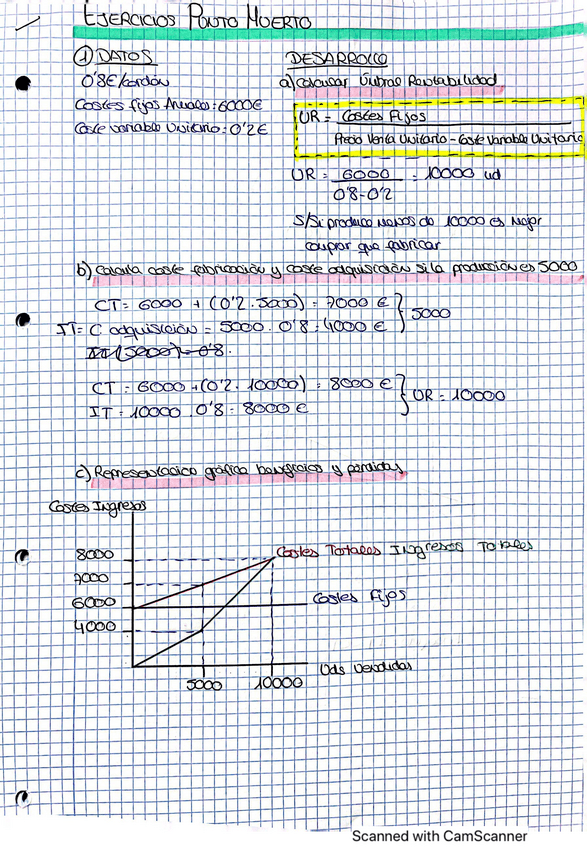 EJERCICIOS PUNTO MUERTO
① DATOS
0'8€/cordón
Costes fijos Anuales: 6000€
Coste variable Unitario: 0'2€
DESARROLLO
a) Calcular Umbral Rentabilidad
UR = Costes Fijos
Precio Venta Unitario - Coste Variable Unitario
UR = 6000 = 10000 ud
0'8-0'2
S/Si produce menos de 10000 es mejor
comprar que fabricar
b) Calcula coste fabricación y coste adquisición si la producción es 5000
CT = 6000 + (0'2 · 5000) = 7000 € } 5000
IT = C adquisición = 5000 · 0'8 = 4000 €
IT (5000) - 0'8.
CT = 6000 + (0'2 · 10000) = 8000 € } UR = 10000
IT = 10000 · 0'8 = 8000 €
c) gráfica y pérdidas
Costes Ingresos
8000
Costes Totales Ingresos Totales
7000
6000
Costes Fijos
4000
Uds Vendidas
5000 10000
Scanned with CamScanner